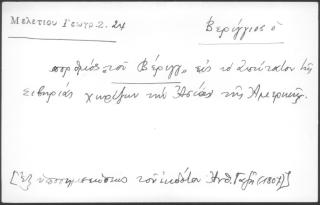 Μελετίου Γεωγρ. 2. 24
Βερίγγιος ὁ
πορθμὸς „τοῦ Βέριγγ„ εἰς τὸ ἀπώτατον τῆς
Σιβηρίας χωρίζων τὴν Ἀσίαν τῆς Ἀμερικῆς.
[Ἐξ ὑποσημειώσεως τοῦ ἐκδότου Ἀνθ. Γαζῆ (1807)]